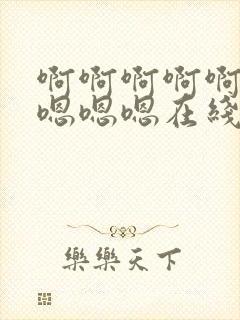 啊啊啊啊啊
嗯嗯嗯在綫
樂樂天下